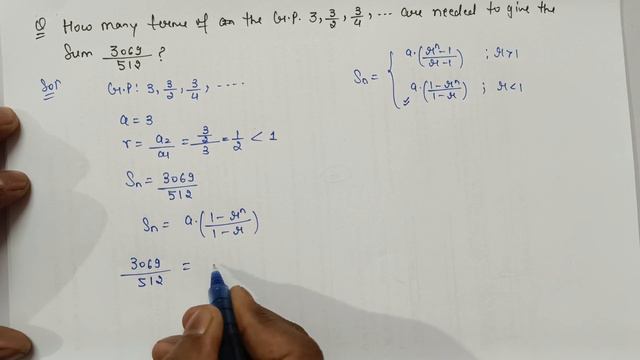 Q How many terms of an the G.P. 3, 3/2, 3/4, ... are needed to give the
Sum 3069/512 ?
Sol G.P: 3, 3/2, 3/4, ....
Sn = { a.(r^n-1/r-1) ; r>1
a.(1-r^n/1-r) ; r<1
a = 3
r = a2/a1 = 3/2/3 = 1/2 < 1
Sn = 3069/512
Sn = a.(1-r^n/1-r)
3069/512 =